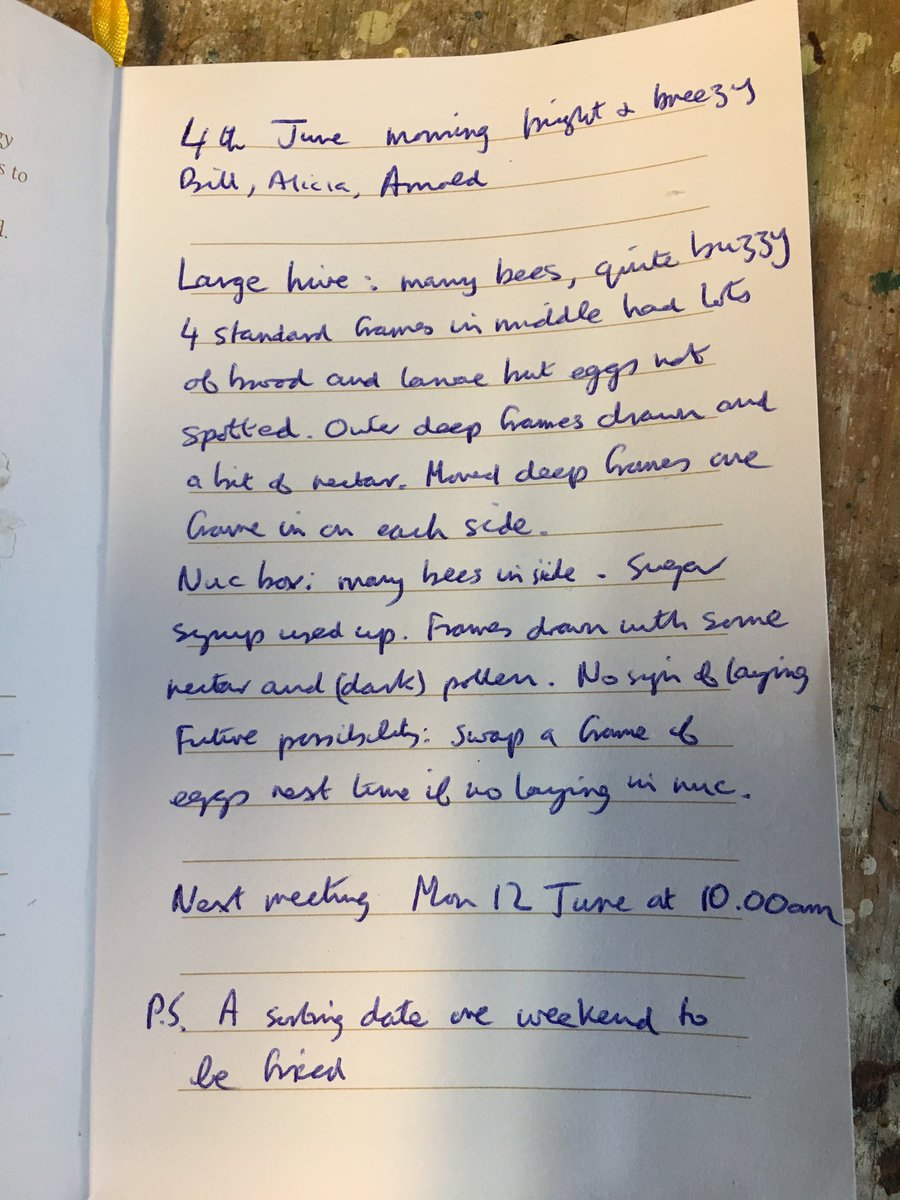 gy
s to
d.
4th June morning bright & breezy
Bill, Alicia, Arnold
Large hive: many bees, quite buzzy
4 standard frames in middle had lots
of brood and larvae but eggs not
spotted. Outer deep frames drawn and
a bit of nectar. Moved deep frames one
frame in on each side.
Nuc box: many bees inside. Sugar
syrup used up. Frames drawn with some
nectar and (dark) pollen. No sign of laying
Future possibility: swap a frame of
eggs next time if no laying in nuc.
Next meeting Mon 12 June at 10.00am
P.S. A sorting date one weekend to
be fixed